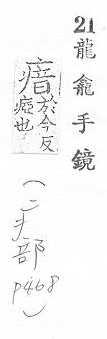 21 龍龕手鏡
瘖 於今反
瘂也
( 部 p468)